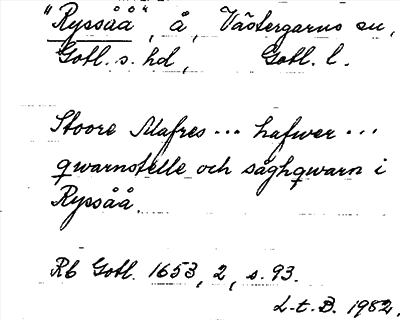 "Ryssåå", å, Västergarns sn,
Gotl. s. hd, Gotl. l.
Stoore Mafres ... hafwer ...
qwarnstelle och såghqwarn i
Ryssåå.
Rb Gotl. 1653, 2, s. 93.
L-t. B. 1982.